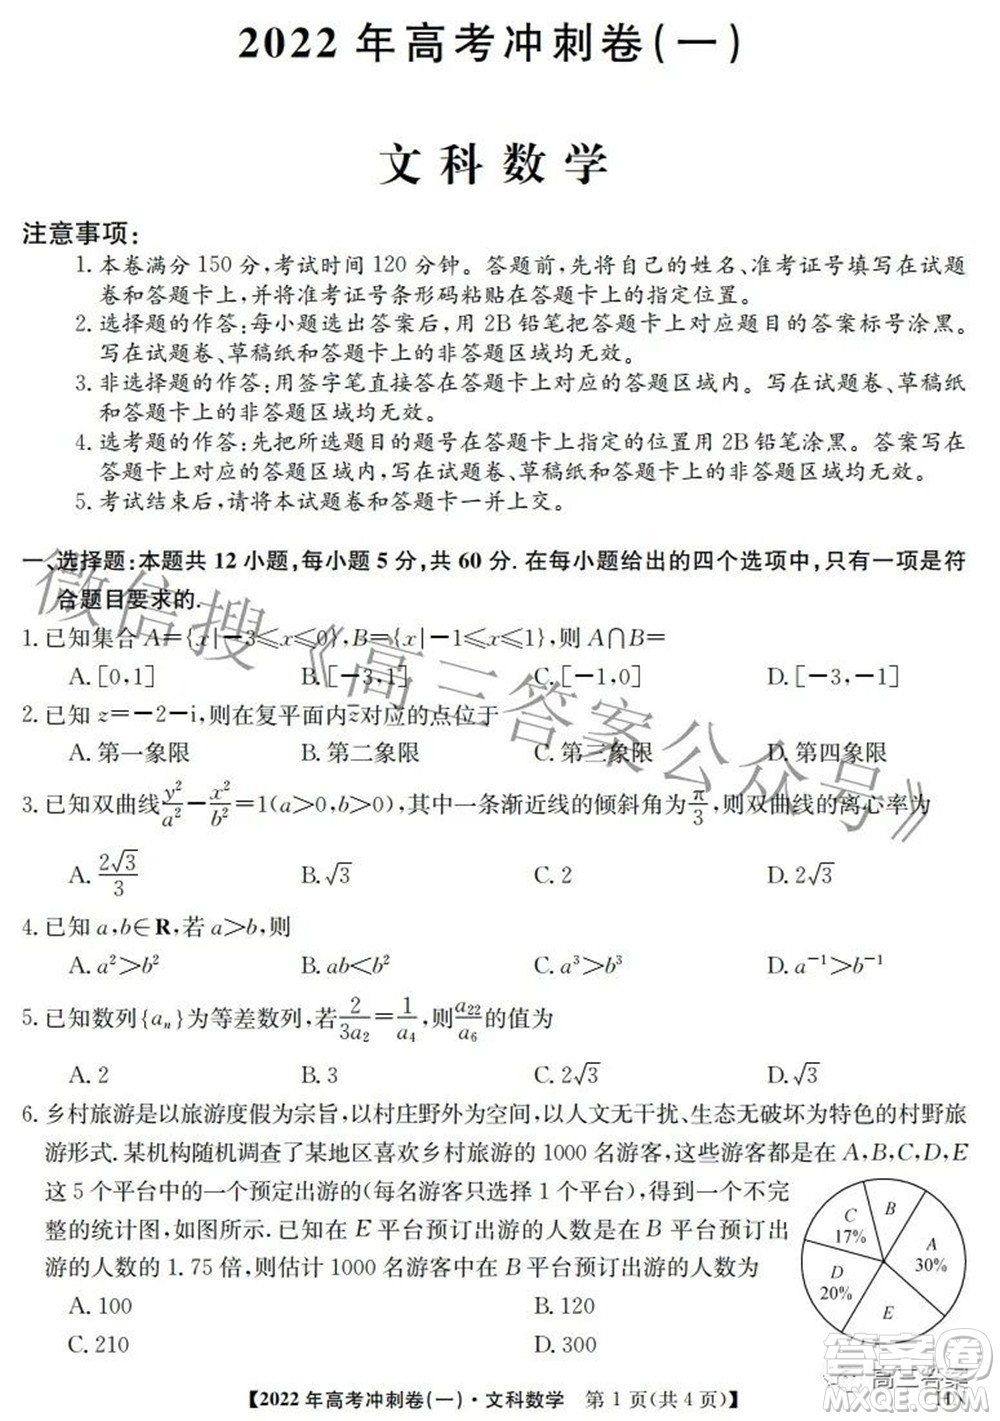 2022年高考冲刺卷(一)
文科数学
注意事项:
1. 本卷满分 150 分,考试时间 120 分钟。答题前,先将自己的姓名、准考证号填写在试题
卷和答题卡上,并将准考证号条形码粘贴在答题卡上的指定位置。
2. 选择题的作答:每小题选出答案后,用 2B 铅笔把答题卡上对应题目的答案标号涂黑。
写在试题卷、草稿纸和答题卡上的非答题区域均无效。
3. 非选择题的作答:用签字笔直接答在答题卡上对应的答题区域内。写在试题卷、草稿纸
和答题卡上的非答题区域均无效。
4. 选考题的作答:先把所选题目的题号在答题卡上指定的位置用 2B 铅笔涂黑。答案写在
答题卡上对应的答题区域内,写在试题卷、草稿纸和答题卡上的非答题区域均无效。
5. 考试结束后,请将本试题卷和答题卡一并上交。
一、选择题:本题共 12 小题,每小题 5 分,共 60 分. 在每小题给出的四个选项中,只有一项是符
合题目要求的.
1. 已知集合 A={x|-3≤x≤0},B={x|-1≤x≤1},则 A∩B=
A. [0,1] B. [-3,1] C. [-1,0] D. [-3,-1]
2. 已知 z=-2-i,则在复平面内 z̄ 对应的点位于
A. 第一象限 B. 第二象限 C. 第三象限 D. 第四象限
3. 已知双曲线 y²/a²-x²/b²=1(a>0,b>0),其中一条渐近线的倾斜角为 π/3,则双曲线的离心率为
A. 2√3/3 B. √3 C. 2 D. 2√3
4. 已知 a,b∈R,若 a>b,则
A. a²>b² B. ab<b² C. a³>b³ D. a⁻¹>b⁻¹
5. 已知数列{aₙ}为等差数列,若 2/(3a₂)=1/a₄,则 a₂₂/a₆ 的值为
A. 2 B. 3 C. 2√3 D. √3
6. 乡村旅游是以旅游度假为宗旨,以村庄野外为空间,以人文无干扰、生态无破坏为特色的村野旅
游形式. 某机构随机调查了某地区喜欢乡村旅游的 1000 名游客,这些游客都是在 A,B,C,D,E
这 5 个平台中的一个预定出游的(每名游客只选择 1 个平台),得到一个不完
整的统计图,如图所示. 已知在 E 平台预订出游的人数是在 B 平台预订出
游的人数的 1.75 倍,则估计 1000 名游客中在 B 平台预订出游的人数为
A. 100 B. 120
C. 210 D. 300
C
17%
B
A
30%
D
20%
E
【2022 年高考冲刺卷(一)·文科数学 第 1 页(共 4 页)】
HN
微信搜《高三答案公众号》
答案卷
高三答案
MXQE.COM